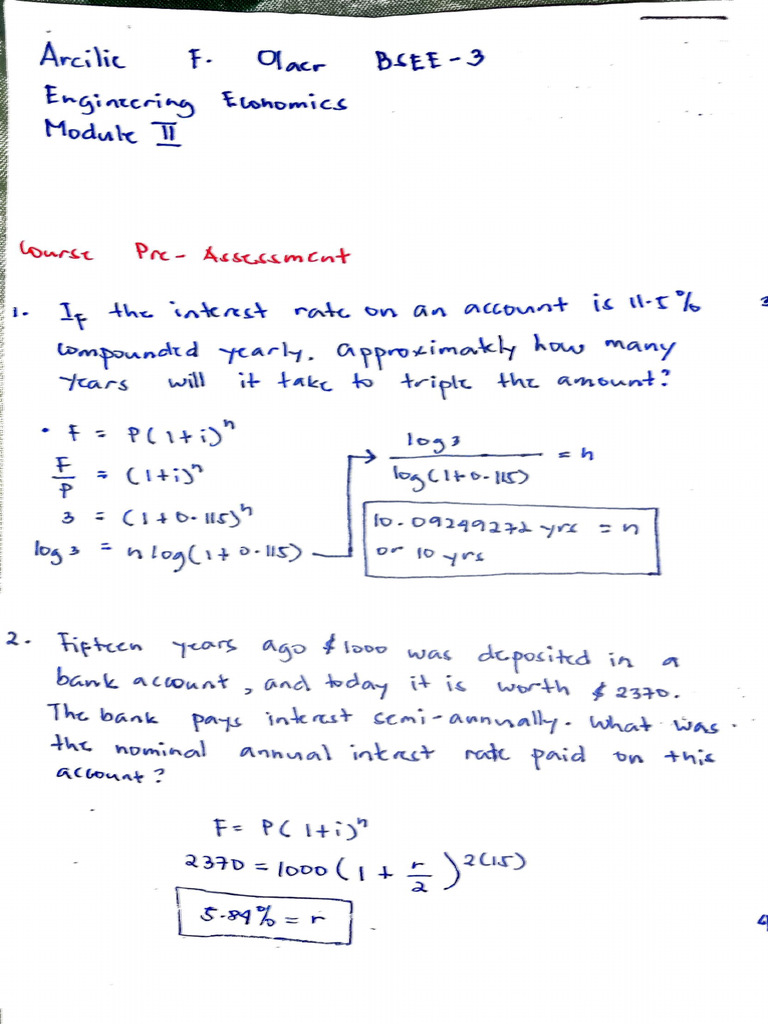 Arcilie F. Olaer BSEE-3
Engineering Economics
Module II
Course Pre-Assessment
1. If the interest rate on an account is 11.5%
compounded yearly. approximately how many
years will it take to triple the amount?
• F = P(1+i)^n
F/P = (1+i)^n
3 = (1+0.115)^n
log 3 = n log(1+0.115)
log 3 / log(1+0.115) = n
10.09249272 yrs = n
or 10 yrs
2. Fifteen years ago $1000 was deposited in a
bank account, and today it is worth $2370.
The bank pays interest semi-annually. What was
the nominal annual interest rate paid on this
account?
F = P(1+i)^n
2370 = 1000(1 + r/2)^2(15)
5.84% = r